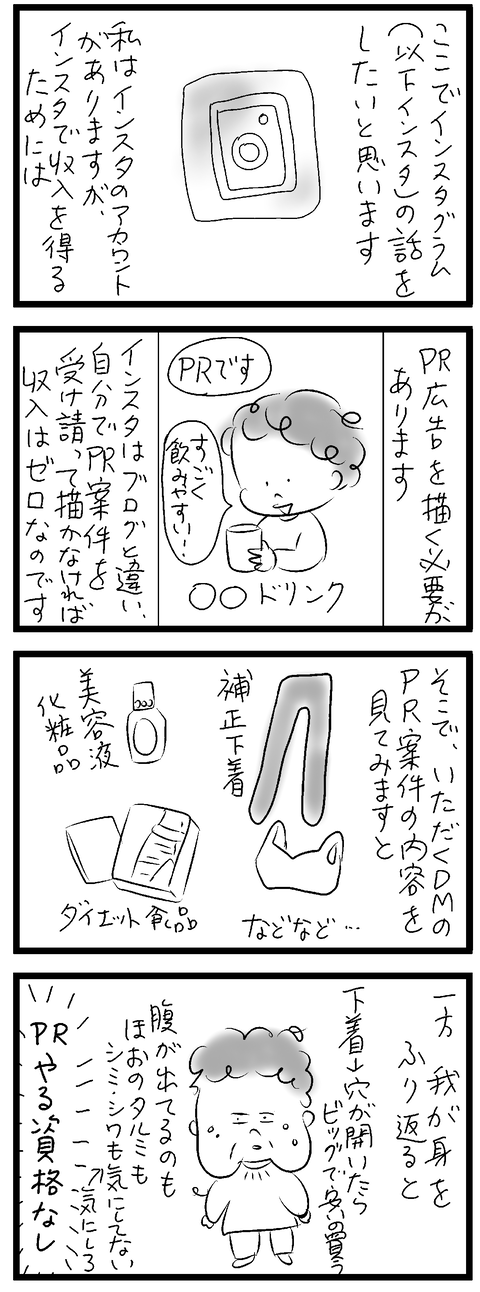 ここでインスタグラム
(以下インスタ)の話を
したいと思います
私はインスタのアカウント
がありますが、
インスタで収入を得る
ためには
PR広告を描く必要が
あります
PRです
すごく
飲みやすい!
〇〇ドリンク
インスタはブログと違い、
自分でPR案件を
受け請って描かなければ
収入はゼロなのです
そこで、いただくDMの
PR案件の内容を
見てみますと
補正下着
などなど…
美容液
化粧品
ダイエット食品
一方 我が身を
ふり返ると
下着→穴が開いたら
ビッグで安いの買う
腹が出てるのも
ほおのタルミも
シミ・シワも気にしてない
気にしろ
PR
やる資格なし